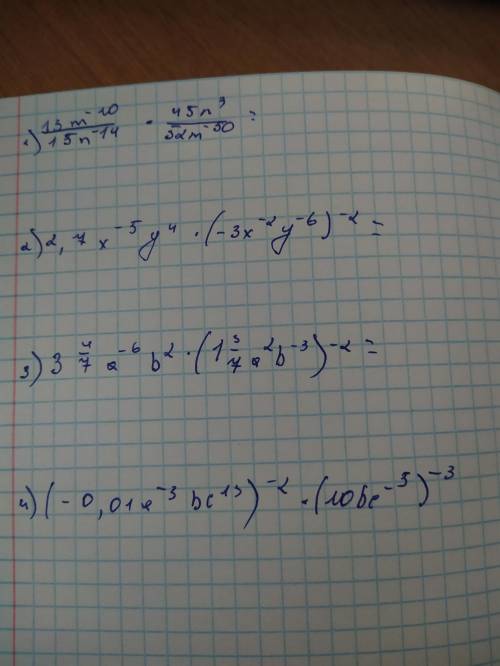 1) 13m⁻¹⁰/15n⁻¹⁴ · 45n³/52m⁻⁵⁰ =
2) 2,7x⁻⁵y⁴ · (-3x⁻²y⁻⁶)⁻² =
3) 3 4/7 a⁻⁶b² · (1 3/7 a²b⁻³)⁻² =
4) (-0,01a⁻³bc¹³)⁻² · (10bc⁻³)⁻³